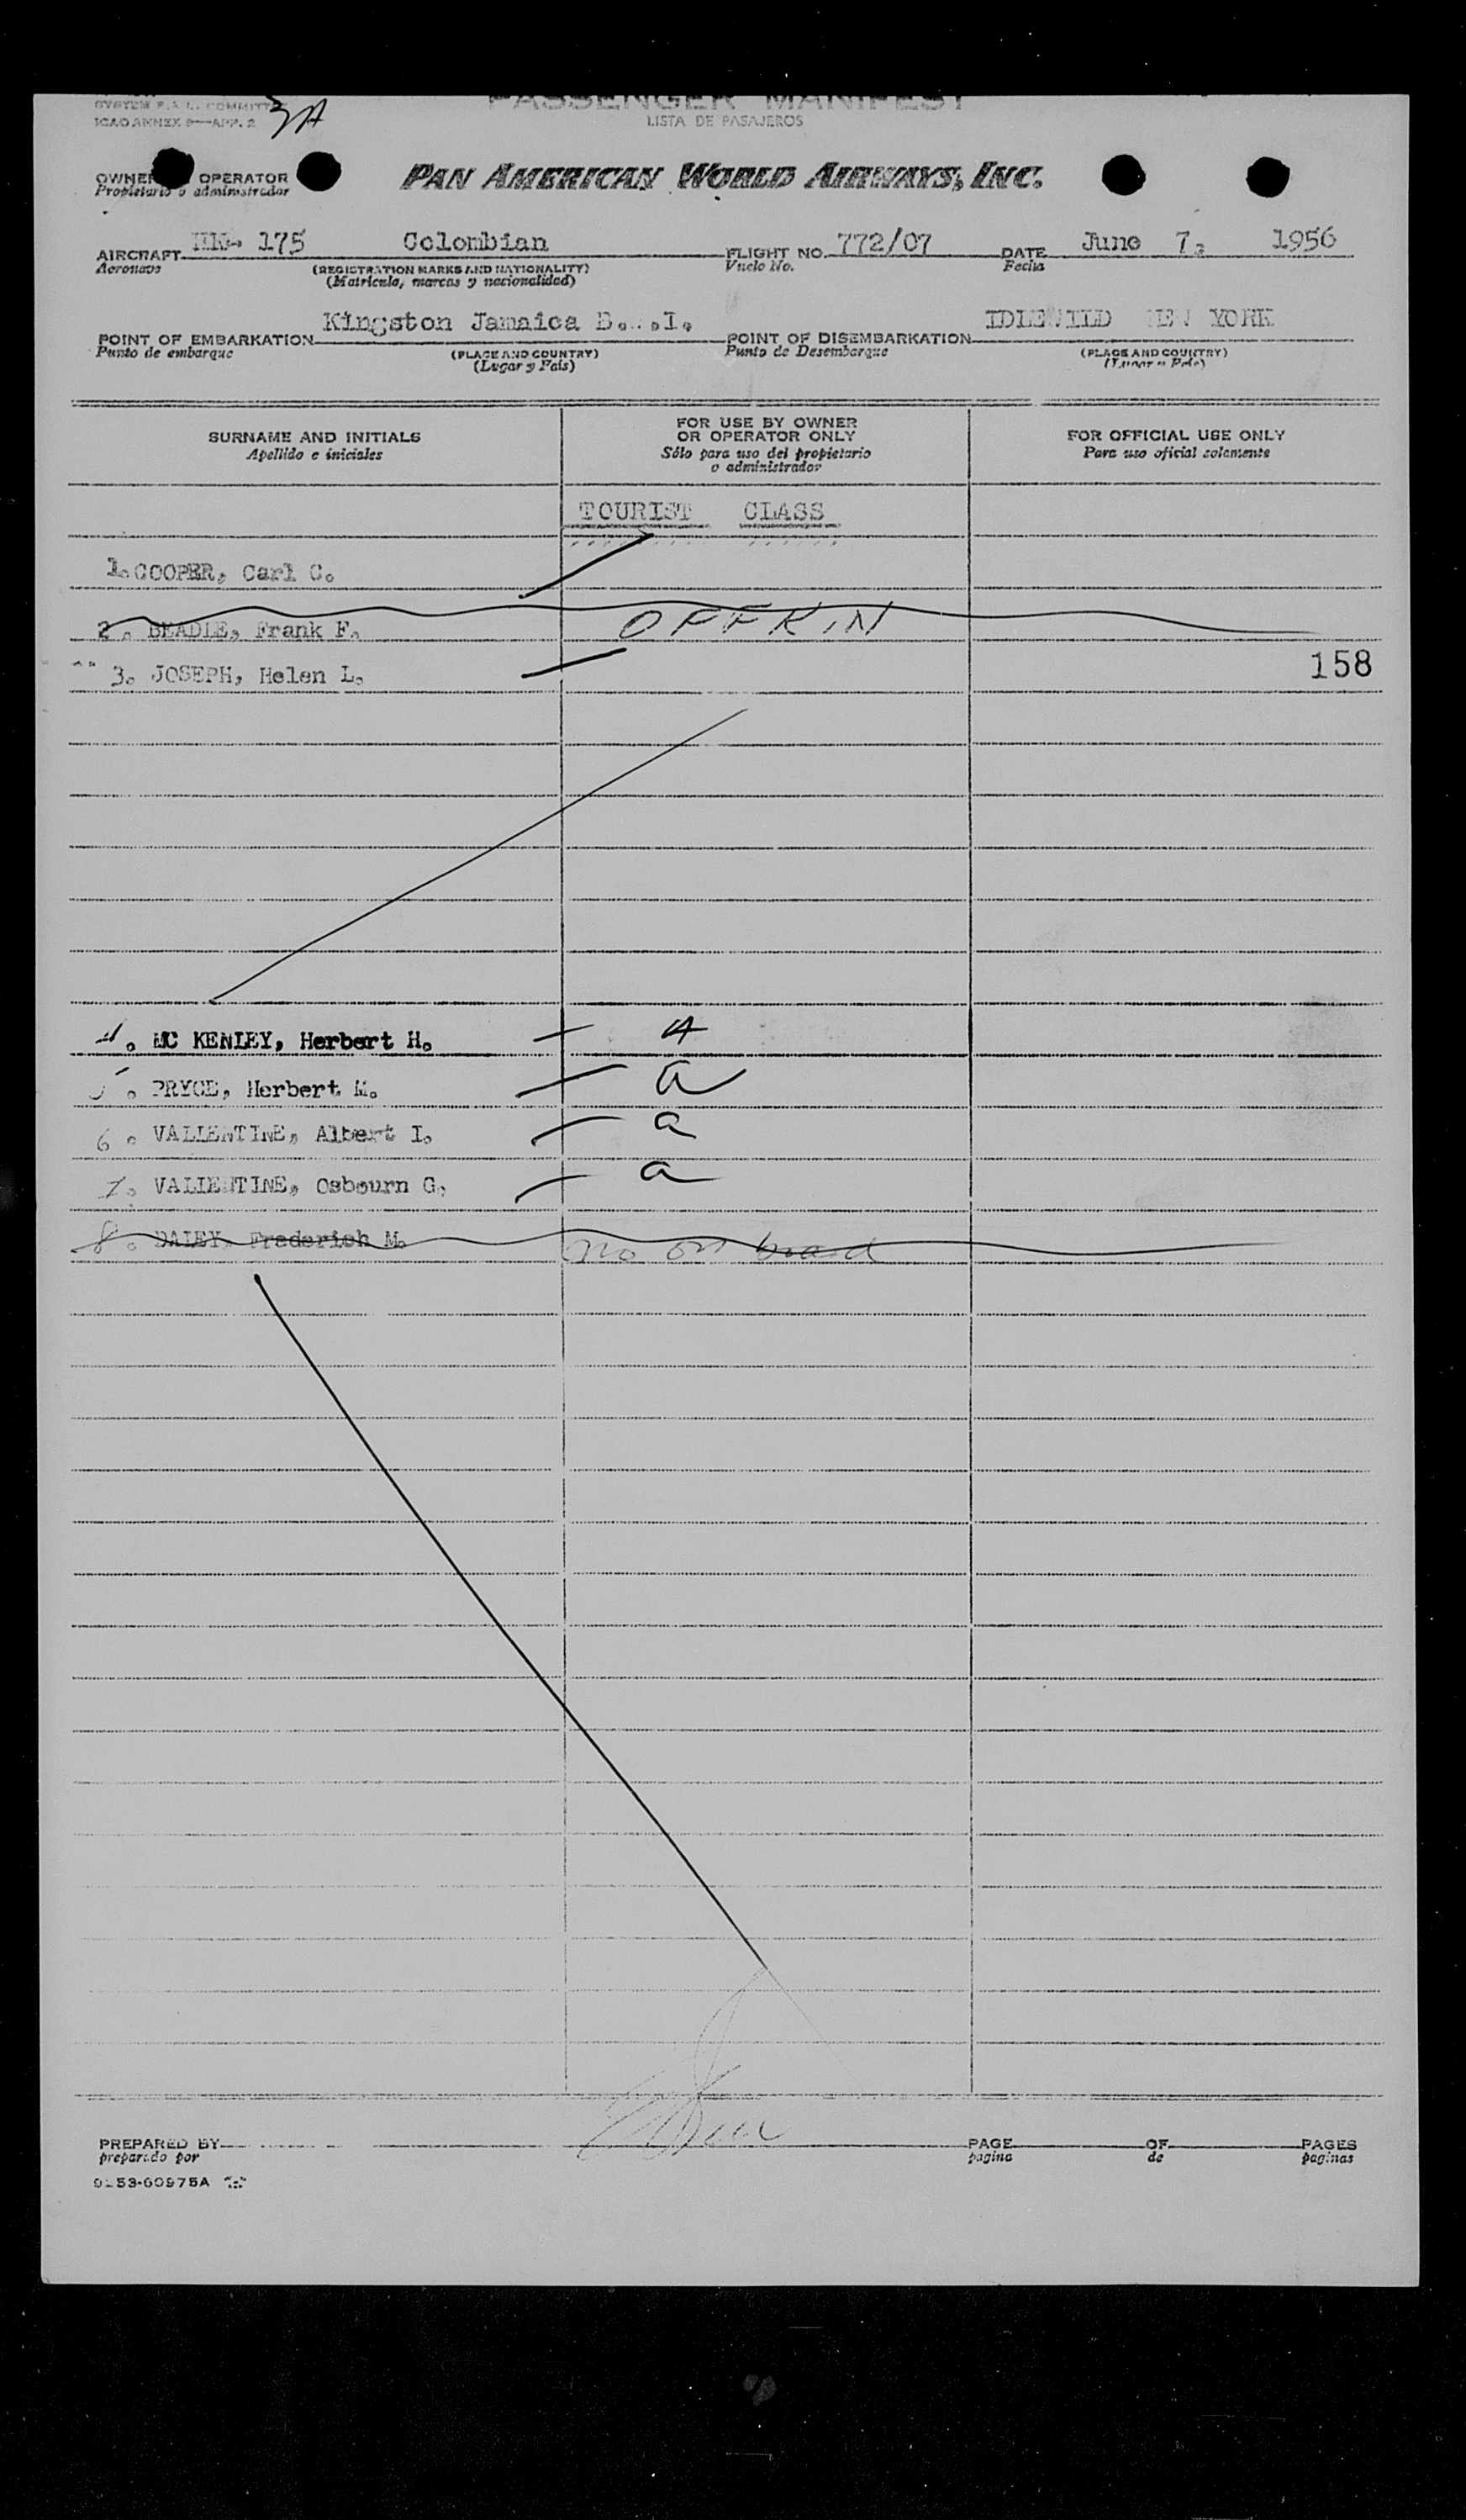 SYSTEM F.A.L. COMMITTEE
ICAO ANNEX 9—APP. 2
3A
PASSENGER MANIFEST
LISTA DE PASAJEROS
OWNER OPERATOR
Propietario o administrador
PAN AMERICAN WORLD AIRWAYS, INC.
AIRCRAFT HK- 175 Colombian FLIGHT NO. 772/07 DATE June 7, 1956
Aeronave (REGISTRATION MARKS AND NATIONALITY) Vuelo No. Fecha
(Matricula, marcas y nacionalidad)
POINT OF EMBARKATION Kingston Jamaica B. .I. POINT OF DISEMBARKATION IDLEWILD NEW YORK
Punto de embarque (PLACE AND COUNTRY) Punto de Desembarque (PLACE AND COUNTRY)
(Lugar y País) (Lugar y País)
SURNAME AND INITIALS
Apellido e iniciales
FOR USE BY OWNER
OR OPERATOR ONLY
Sólo para uso del propietario
o administrador
FOR OFFICIAL USE ONLY
Para uso oficial solamente
TOURIST CLASS
1. COOPER, Carl C.
2. BEADLE, Frank F. OFFKIN
3. JOSEPH, Helen L. 158
4. MC KENLEY, Herbert H. A
5. PRYCE, Herbert M. a
6. VALLENTINE, Albert I. a
7. VALLENTINE, Osbourn G. a
8. DALEY, Frederich M. no on board
PREPARED BY PAGE OF PAGES
preparado por pagina de paginas